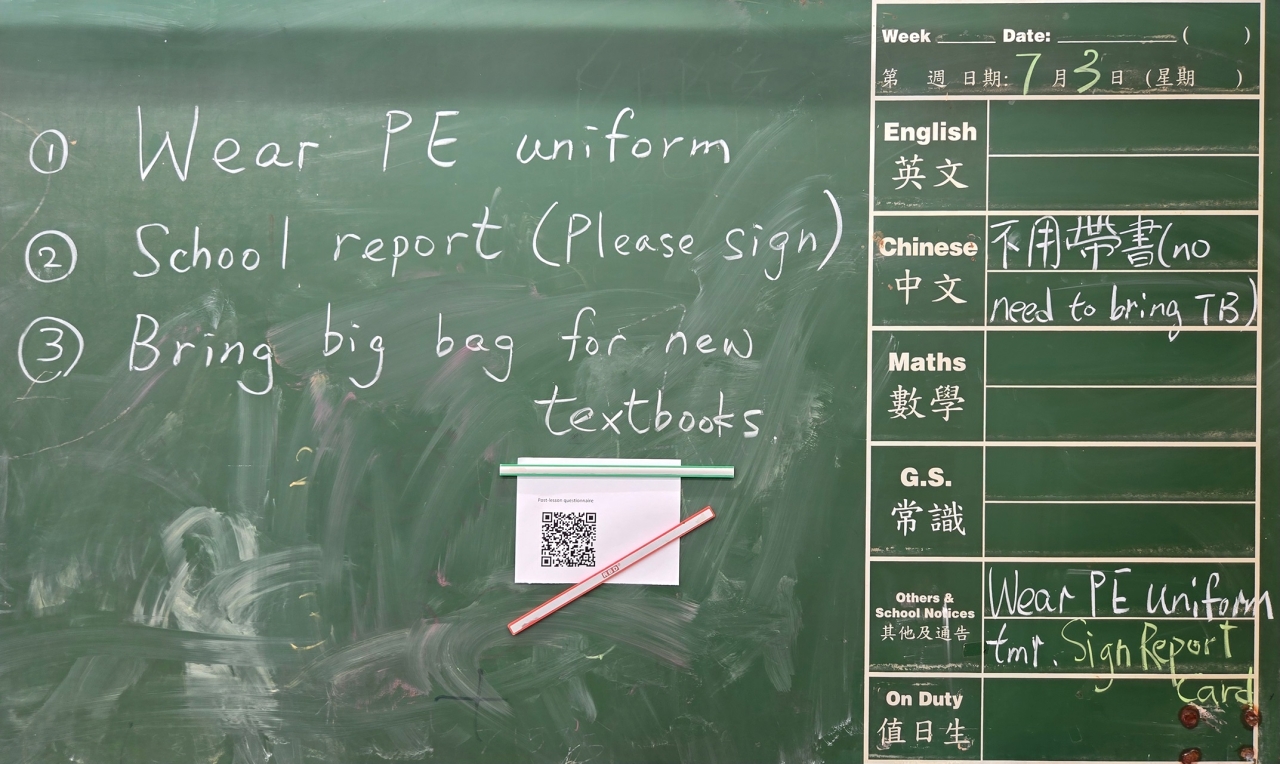 ① Wear PE uniform
② School report (Please sign)
③ Bring big bag for new
textbooks
Post-lesson questionnaire
Week ______ Date: ______________ ( )
第 週 日期: 7 月 3 日 (星期 )
English
英文
Chinese
中文
不用帶書(no
need to bring TB)
Maths
數學
G.S.
常識
Others &
School Notices
其他及通告
Wear PE uniform
tmr. Sign Report
Card
On Duty
值日生